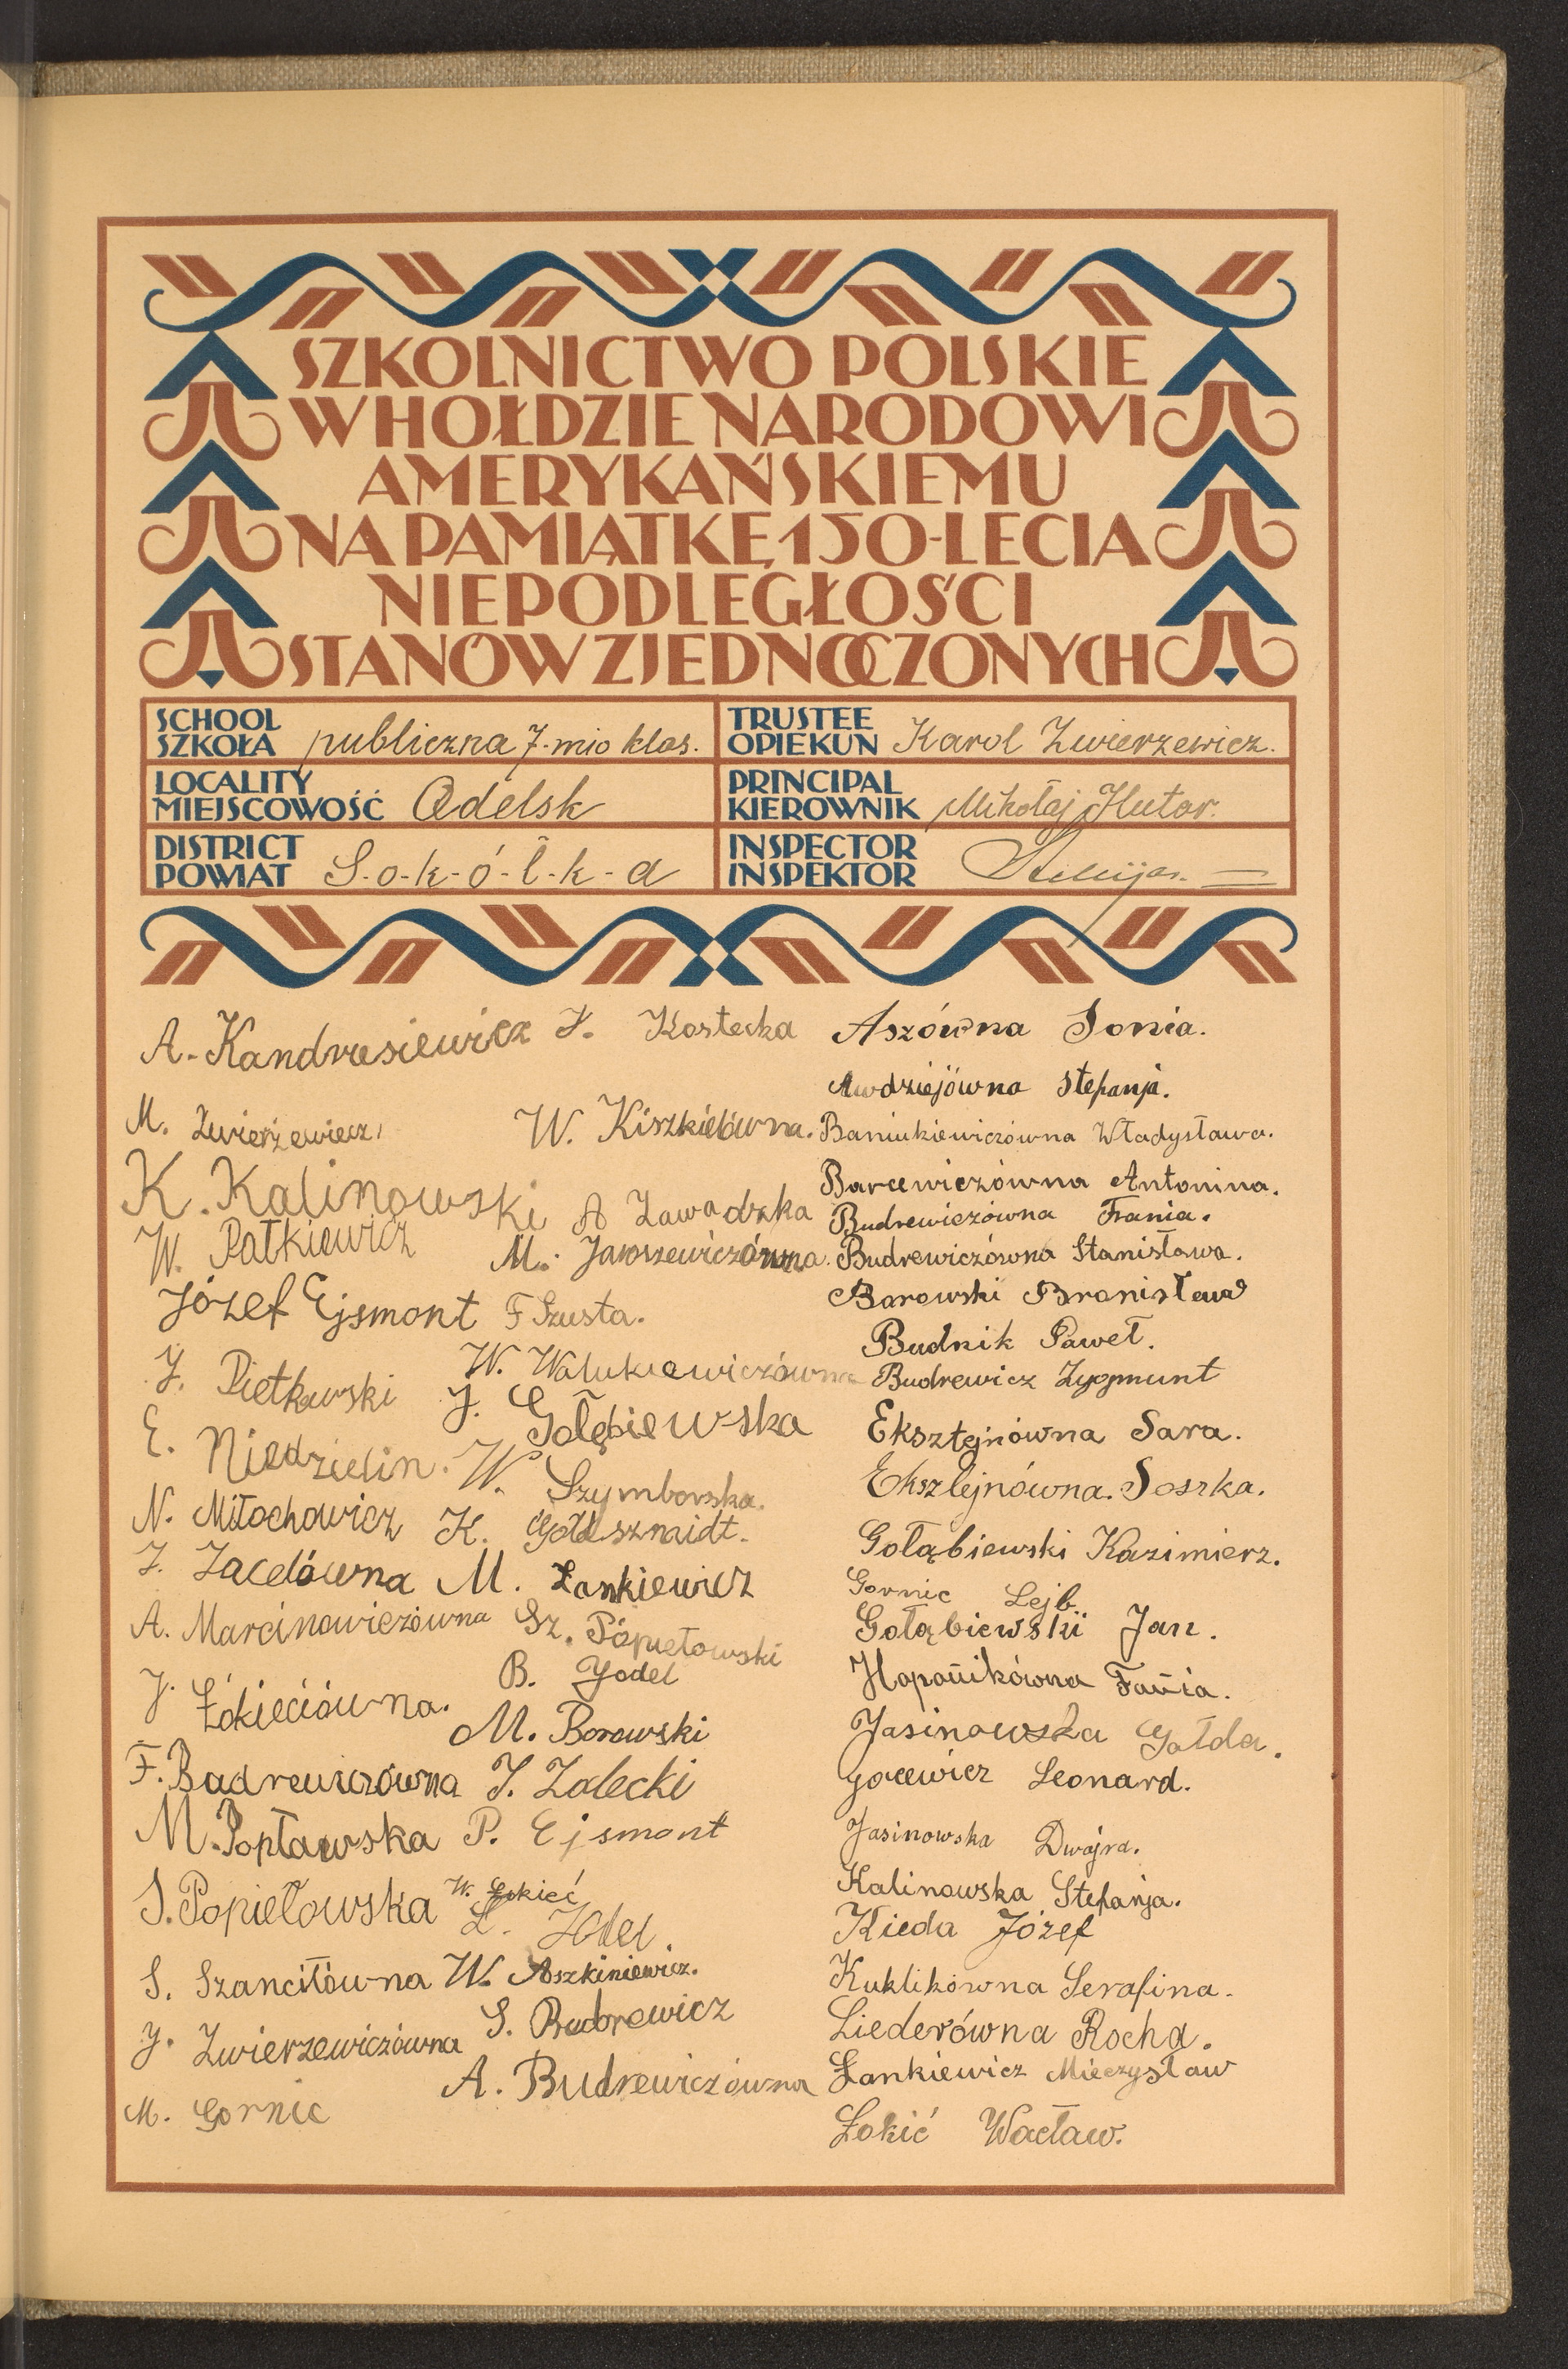 SZKOLNICTWO POLSKIE
W HOŁDZIE NARODOWI
AMERYKAŃSKIEMU
NA PAMIĄTKĘ 150-LECIA
NIEPODLEGŁOŚCI
STANÓW ZJEDNOCZONYCH
SCHOOL
SZKOŁA publiczna 7-mio klas.
TRUSTEE
OPIEKUN Karol Zwierzewicz.
LOCALITY
MIEJSCOWOŚĆ Odelsk
PRINCIPAL
KIEROWNIK Mikołaj Hutor.
DISTRICT
POWIAT S-o-k-ó-ł-k-a
INSPECTOR
INSPEKTOR
A. Kandresiewicz
M. Zwierzewicz
K. Kalinowski
W. Patkiewicz
Józef Ejsmont
J. Pietkowski
E. Niedzielin.
N. Miłochowicz
Z. Zacelówna
A. Marcinowiczówna
J. Łokieciówna.
F. Budrewiczówna
M. Popławska
S. Popiełowska
S. Szanciłówna
J. Zwierzewiczówna
M. Gornic
Kostecka
W. Kiszkielówna.
A Zawadzka
M. Jaroszewiczówna.
F Szusta.
W. Walukiewiczówna
J. Gołębiewska
W. Szymborska.
K. Goldsznaidt.
M. Łankiewicz
Sz. Popiełowski
B. Jodel
M. Borowski
J. Zalecki
P. Ejsmont
W. Łokieć
W. Aszkiniewicz.
S. Budrewicz
A. Budrewiczówna
Aszówna Sonia.
Awdziejówna Stefanja.
Baniukiewiczówna Władysława.
Barcewiczówna Antonina.
Budrewiczówna Frania.
Budrewiczówna Stanisława.
Borowski Bronisław
Budnik Paweł.
Budrewicz Zygmunt
Eksztejnówna Sara.
Eksztejnówna. Soszka.
Gołąbiewski Kazimierz.
Gornic Lejb
Gołąbiewski Jan.
Haponikówna Fania.
Jasinowska Gołda.
Jacewicz Leonard.
Jasinowska Dwojra.
Kalinowska Stefanja.
Kieda Józef
Kuklikówna Serafina.
Liederówna Rocha.
Łankiewicz Mieczysław
Łokić Wacław.